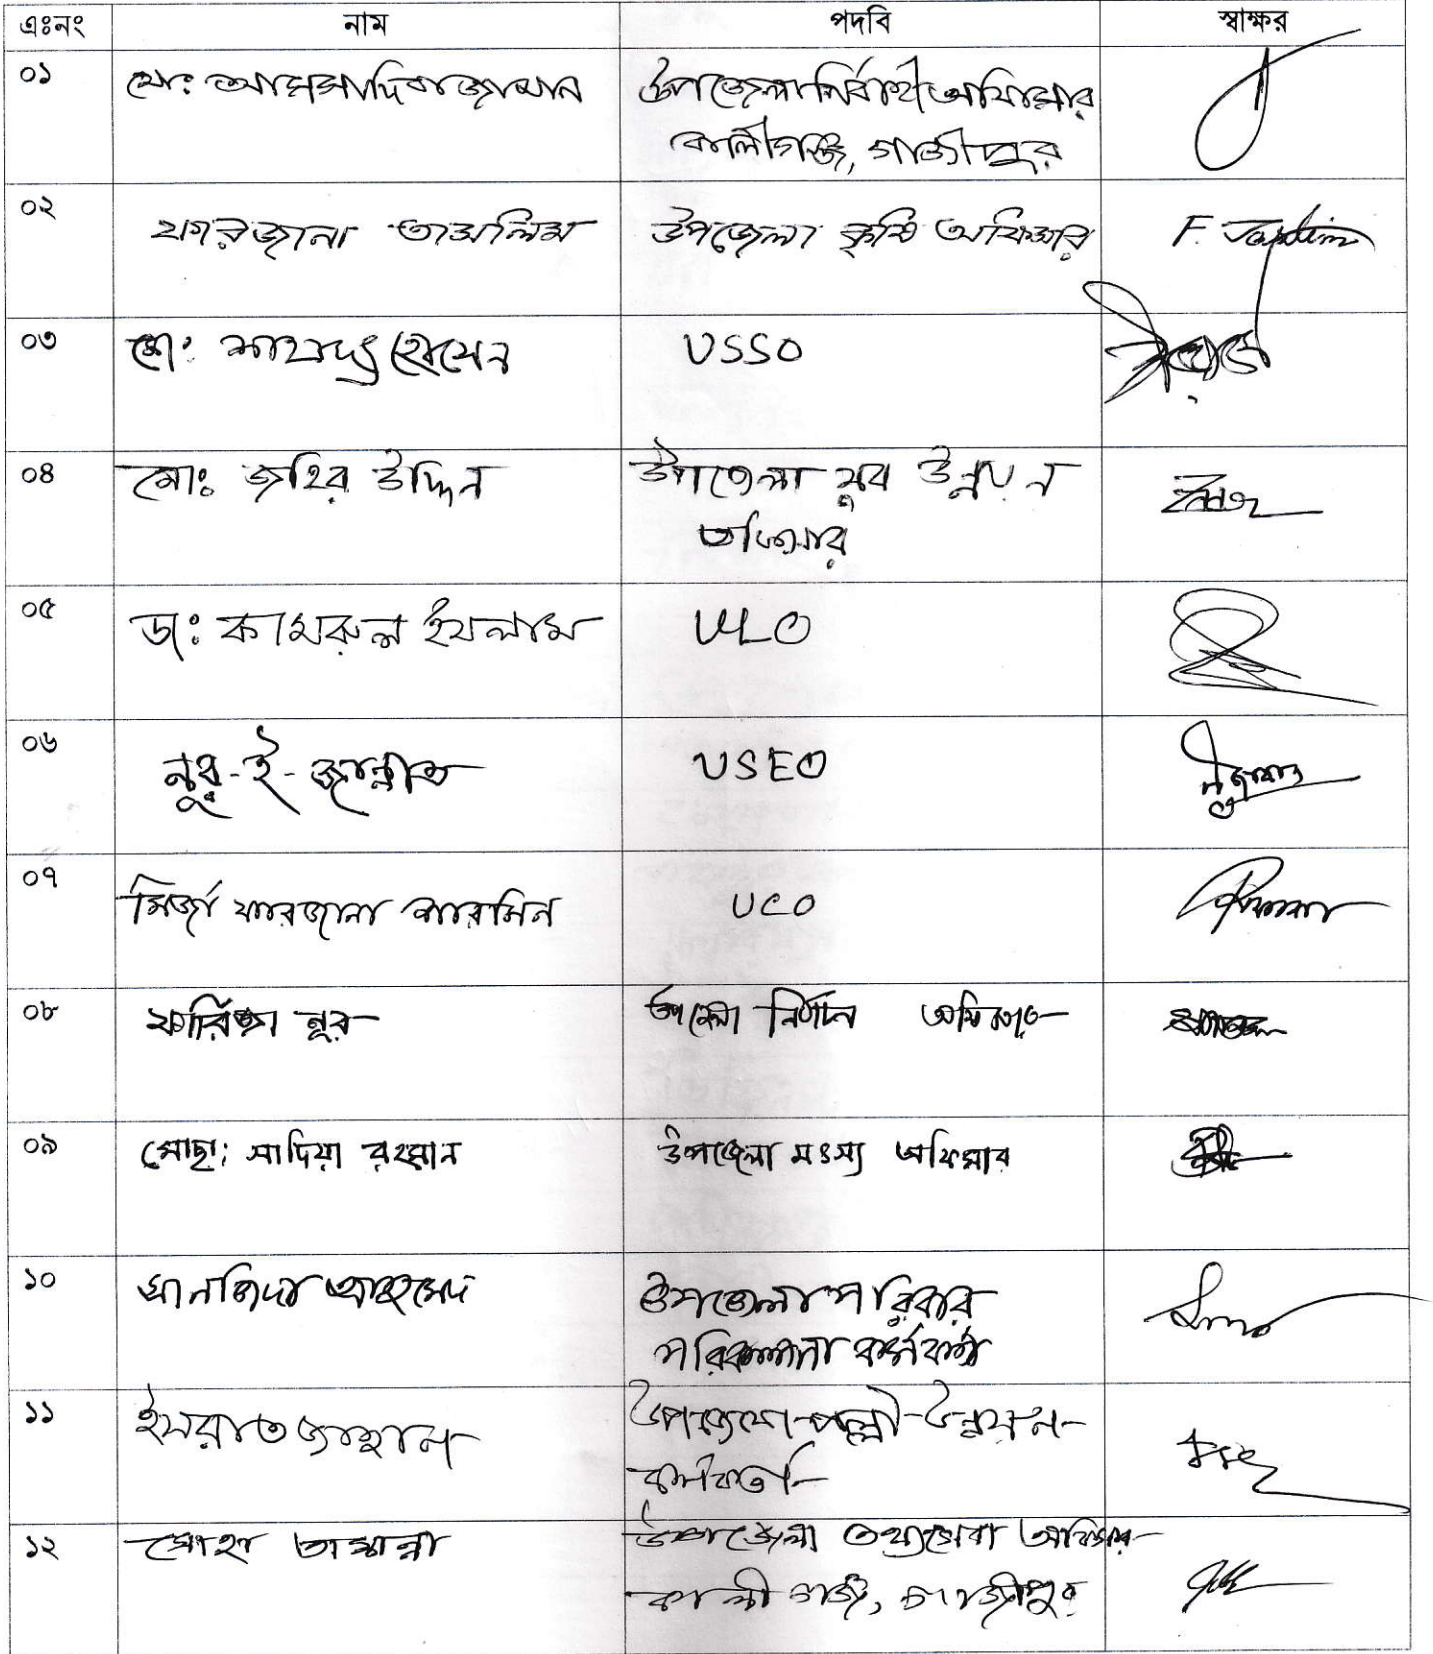 এঃনং নাম পদবি স্বাক্ষর
০১ মো: আসসাদিকজামান উপজেলা নির্বাহী অফিসার
কালীগঞ্জ, গাজীপুর
০২ ফারজানা তাসলিম উপজেলা কৃষি অফিসার F. Taslim
০৩ মো: শাহাদৎ হোসেন USSO
০৪ মোঃ জহির উদ্দিন উপজেলা যুব উন্নয়ন
অফিসার
০৫ ডা: কামরুল ইসলাম ULO
০৬ নূর-ই-জান্নাত USEO
০৭ মির্জা ফারজানা শারমিন UCO
০৮ ফারিজা নূর উপজেলা নির্বাচন অফিসার
০৯ মোছা: সাদিয়া রহমান উপজেলা মৎস্য অফিসার
১০ সানজিদা আহমেদ উপজেলা পরিবার
পরিকল্পনা কর্মকর্তা
১১ ইসরাত জাহান উপজেলা পল্লী উন্নয়ন
কর্মকর্তা
১২ তামান্না উপজেলা তথ্যসেবা অফিসার
কালীগঞ্জ, গাজীপুর